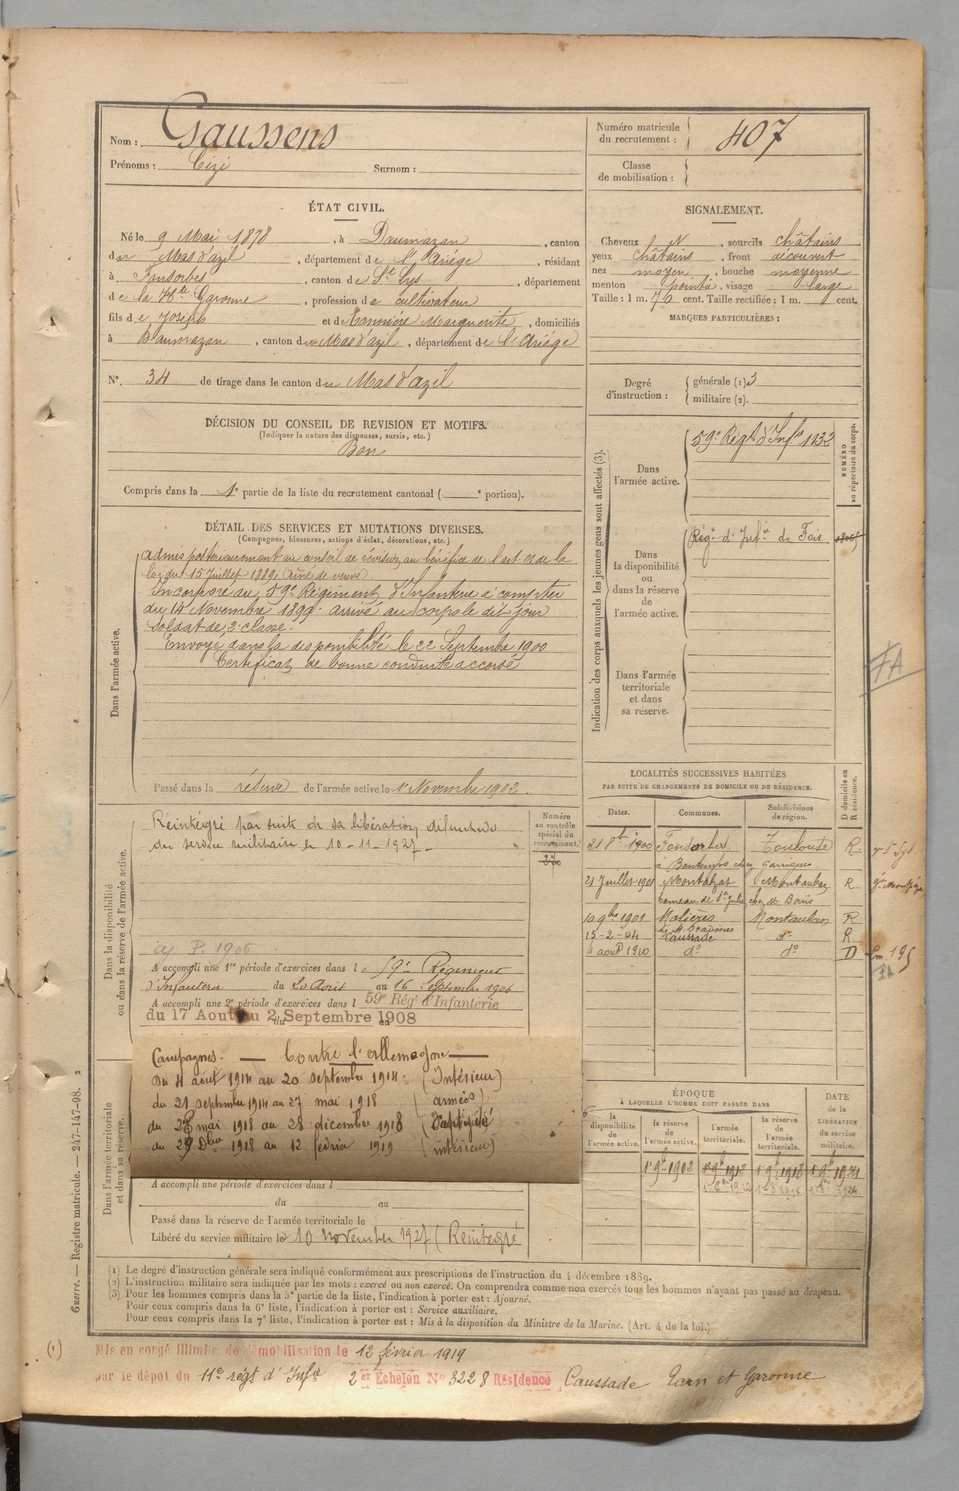 Nom : Gaussens
Prénoms : Cizi Surnom :
Numéro matricule du recrutement : 407
Classe de mobilisation :
ÉTAT CIVIL.
Né le 9 Mai 1878, à Daumazan, canton
du Mas d'azil, département de l'Ariége, résidant
à Fonsorbes, canton de St Lys, département
de la Hte Garonne, profession de cultivateur
fils de Joseph et de Marguerite, domiciliés
à Daumazan, canton du Mas d'azil, département de l'Ariége
N°. 34 de tirage dans le canton du Mas d'azil
SIGNALEMENT.
Cheveux N, sourcils châtains
yeux châtains, front découvert
nez moyen, bouche moyenne
menton pointu, visage large
Taille : 1 m. 76 cent. Taille rectifiée : 1 m. cent.
MARQUES PARTICULIÈRES :
Degré d'instruction : générale (1) 3
militaire (2).
DÉCISION DU CONSEIL DE REVISION ET MOTIFS.
(Indiquer la nature des dispenses, sursis, etc.)
Bon
Compris dans la 1e partie de la liste du recrutement cantonal ( e portion).
DÉTAIL DES SERVICES ET MUTATIONS DIVERSES.
(Campagnes, blessures, actions d'éclat, décorations, etc.)
Dans l'armée active.
admis postérieurement au conseil de révision au bénéfice de l'art. 21 de la
loi du 15 Juillet 1889, Aîné de veuve
Incorporé au 59e Régiment d'Infanterie à compter
du 14 Novembre 1899. arrivé au corps le dit jour
Soldat de 2e classe.
Envoyé dans la disponibilité le 22 Septembre 1900
Certificat de bonne conduite accordé
Passé dans la réserve de l'armée active le 1r Novembre 1902.
Indication des corps auxquels les jeunes gens sont affectés (3).
Dans l'armée active.
59e Régt d'Infie 1132
NUMÉRO au répertoire du corps.
Dans la disponibilité ou dans la réserve de l'armée active.
Régt d'Infie de Foix
Dans l'armée territoriale et dans sa réserve.
FA
Dans la disponibilité ou dans la réserve de l'armée active.
Réintégré par suite de sa libération
du service militaire le 10-11-1927
Numéro au contrôle spécial du recrutement.
aj P. 1906
A accompli une 1re période d'exercices dans le 59e Régiment
d'Infanterie du 20 Août au 16 Septembre 1906
A accompli une 2e période d'exercices dans l 59e Régt d'Infanterie
du 17 Août au 2 Septembre 1908
Campagnes. — Contre l'Allemagne —
Du 4 août 1914 au 20 septembre 1914 (Intérieur)
du 21 septembre 1914 au 27 mai 1918 (armées)
du 28 mai 1918 au 28 décembre 1918 (Captivité
du 29 Dbre 1918 au 12 février 1919 (intérieur)
Dans l'armée territoriale et dans sa réserve.
A accompli une période d'exercices dans l
du au
Passé dans la réserve de l'armée territoriale le
Libéré du service militaire le 10 novembre 1927 (Réintégré
LOCALITÉS SUCCESSIVES HABITÉES
PAR SUITE DE CHANGEMENTS DE DOMICILE OU DE RÉSIDENCE.
Dates. Communes. Subdivisions de région. D domicile ou R résidence.
21 8bre 1900 Fonsorbes Toulouse R
21 Juillet 1901 Montalzat Montauban R
19 9bre 1901 Molières Montauban R
15-2-04 Caussade do R
4 aout 1910 do do D
ÉPOQUE
À LAQUELLE L'HOMME DOIT PASSER DANS
la disponibilité de l'armée active. la réserve de l'armée active. l'armée territoriale. la réserve de l'armée territoriale.
DATE de la LIBÉRATION du service militaire.
1r 9bre 1902 1r 9bre 1912 1r 9bre 1918 1r 9bre 1924
Guerre. — Registre matricule. — 247-147-98. 2
(1) Le degré d'instruction générale sera indiqué conformément aux prescriptions de l'instruction du 4 décembre 1889.
(2) L'instruction militaire sera indiquée par les mots : exercé ou non exercé. On comprendra comme non exercés tous les hommes n'ayant pas passé au drapeau.
(3) Pour les hommes compris dans la 5e partie de la liste, l'indication à porter est : Ajourné.
Pour ceux compris dans la 6e liste, l'indication à porter est : Service auxiliaire.
Pour ceux compris dans la 7e liste, l'indication à porter est : Mis à la disposition du Ministre de la Marine. (Art. 4 de la loi.)
(1) Mis en congé illimité de démobilisation le 12 février 1919
par le dépôt du 11e régt d'Infie 2er Echelon No 3228 Résidence Caussade Tarn et Garonne